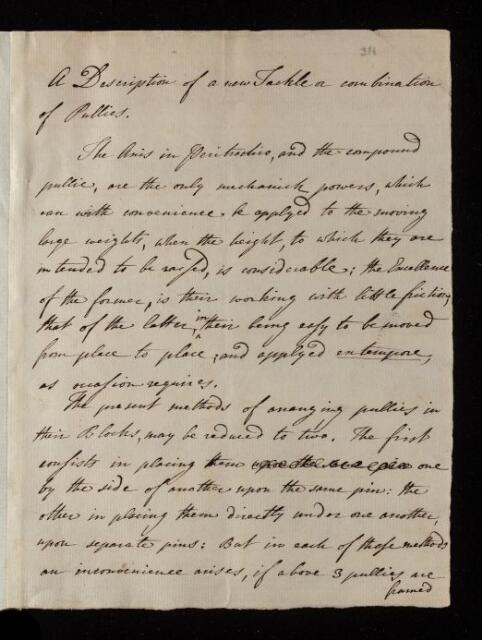 A Description of a new Tackle or combination
of Pullies.
The Axis in Peritrochio, and the compound
pullie, are the only mechanick powers, which
can with convenience be applyed to the moving
large weights, when the height, to which they are
intended to be raised, is considerable; the Excellence
of the former, is their working with little friction,
that of the latter in their being easy to be moved
from place to place, and applyed extempore,
as occasion requires.
The present methods of arranging pullies in
their Blocks, may be reduced to two. The first
consists in placing them one
by the side of another upon the same pin: the
other in placing them directly under one another,
upon separate pins: But in each of these methods
an inconvenience arises, if above 3 pullies are
framed